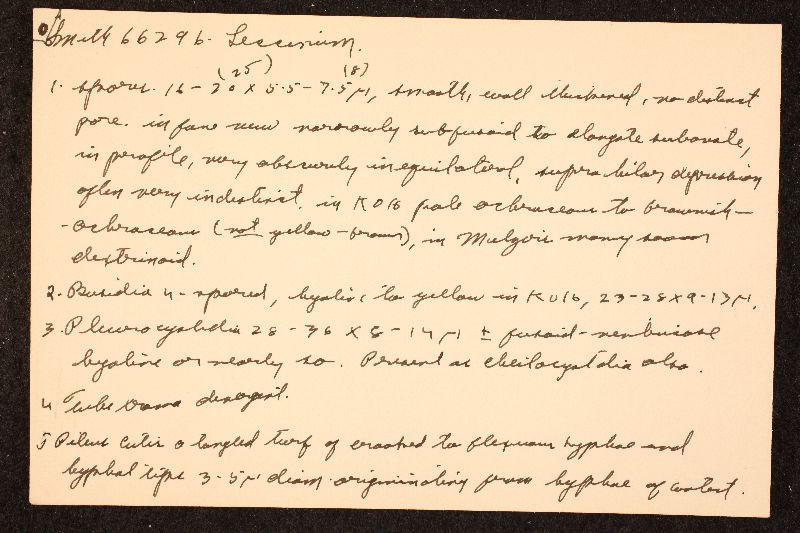 Smith 66296. Leccinum.
(25) (8)
1. spores. 16-20 x 5.5-7.5 µ, smooth, wall thickened, no distinct
pore. in face view narrowly subfusoid to elongate subovate,
in profile, very obscurely inequilateral, suprahilar depression
often very indistinct. in KOH pale ochraceous to brownish-
-ochraceous (not yellow-brown), in Melzers many soon
dextrinoid.
2. Basidia 4-spored, hyaline to yellow in KOH, 23-28 x 9-13 µ.
3. Pleurocystidia 28-36 x 8-14 µ ± fusoid-ventricose
hyaline or nearly so. Present as cheilocystidia also.
4 Tube trama divergent.
5 Pileus cutis a tangled turf of crooked to flexuous hyphae and
hyphal tips 3-5 µ diam. originating from hyphae of context.